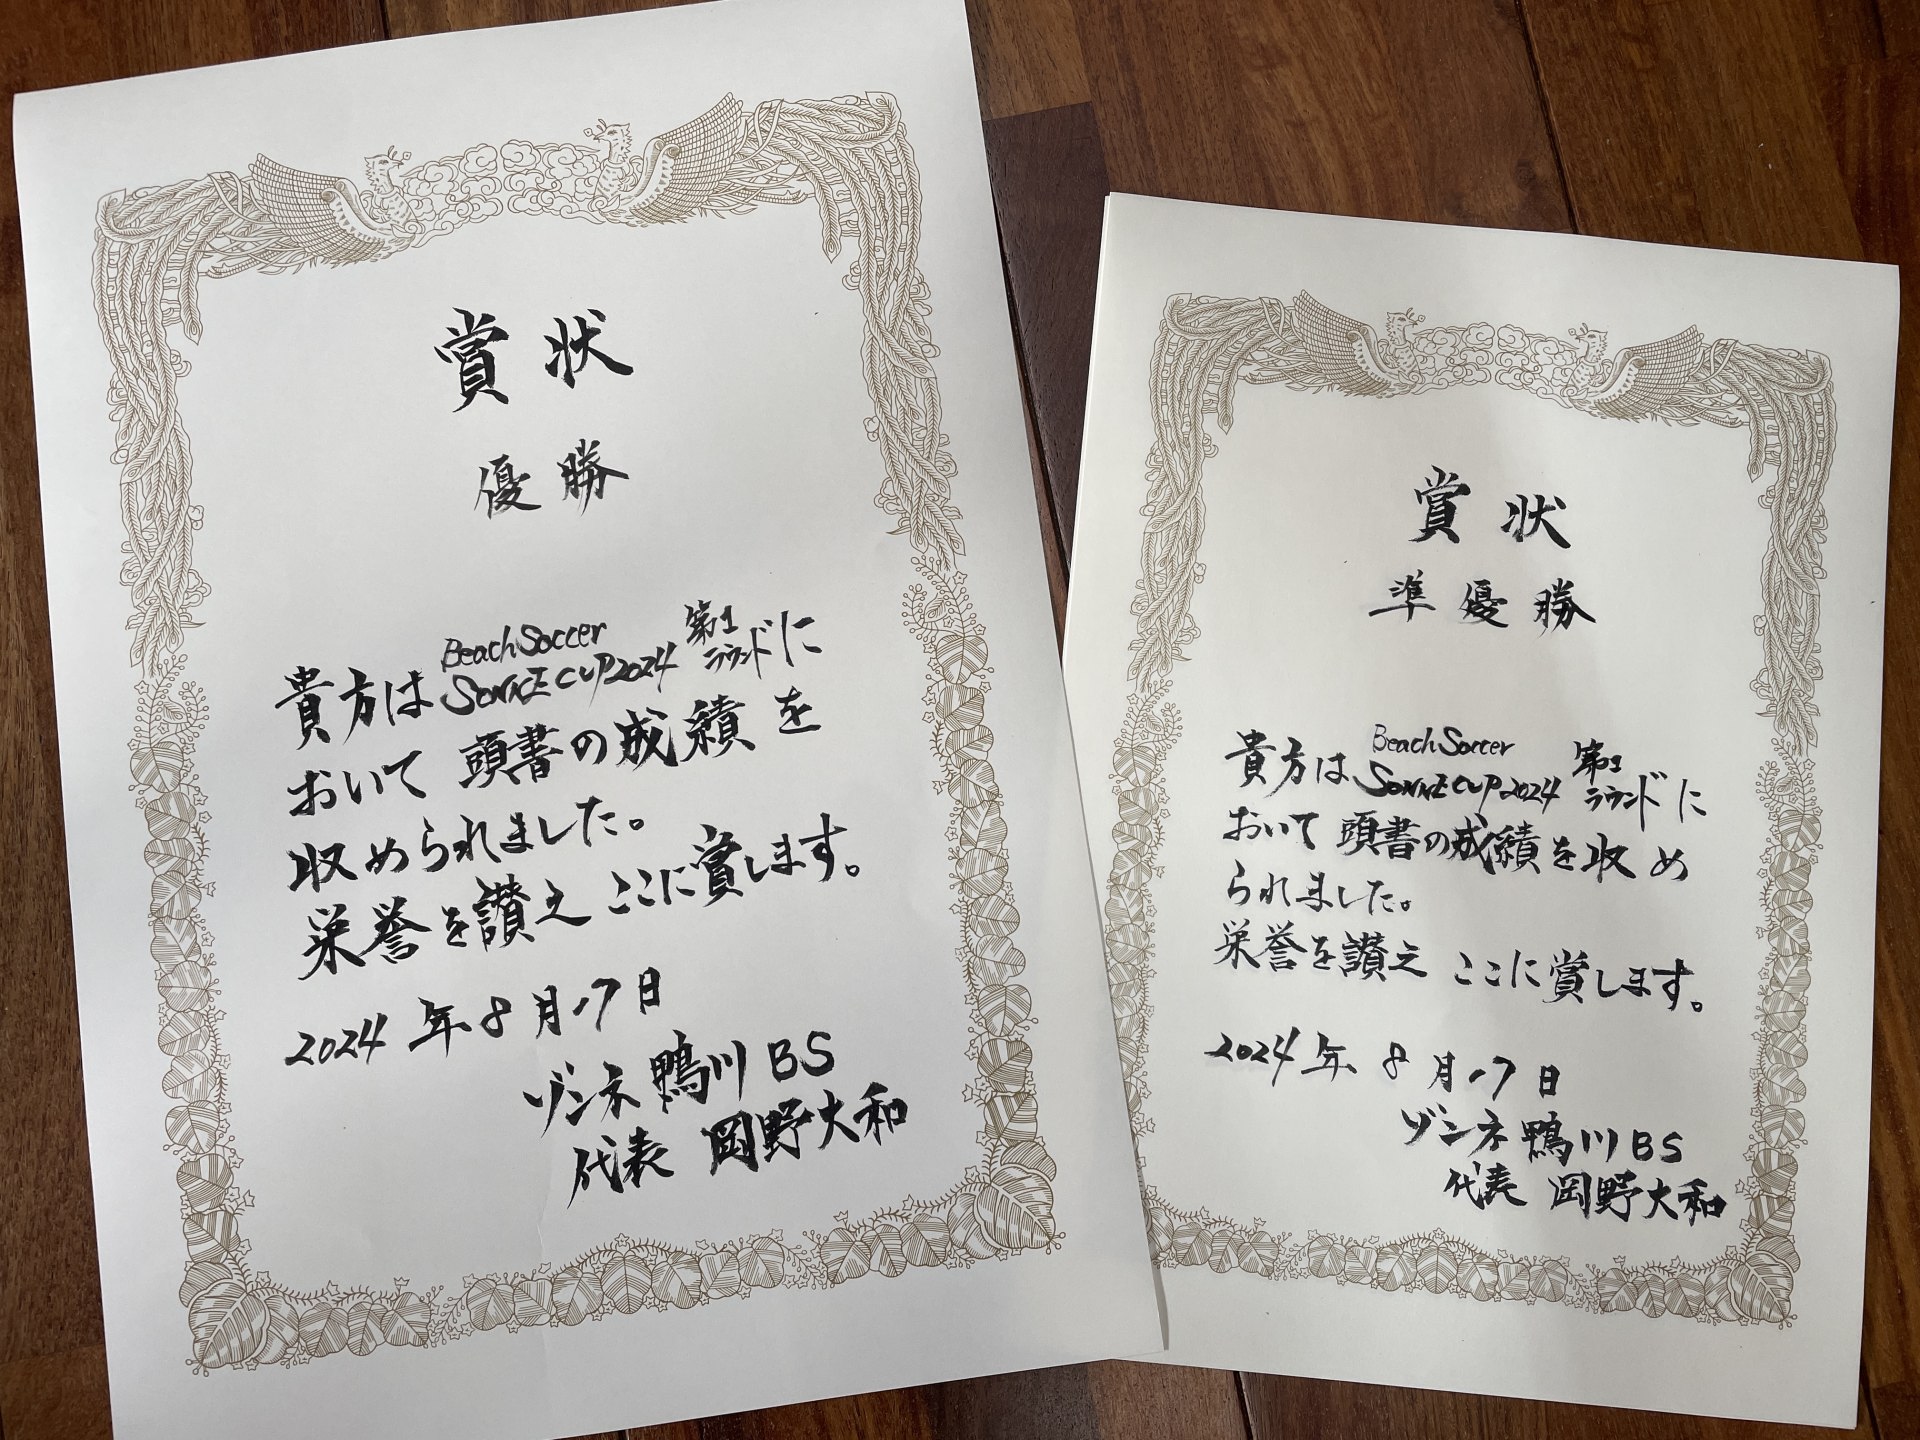 賞状
優勝
貴方は Beach Soccer SONNE CUP 2024 第1ラウンドに
おいて 頭書の成績を
収められました。
栄誉を讃え ここに賞します。
2024年8月17日
ゾンネ鴨川BS
代表 岡野大和
賞状
準優勝
貴方は Beach Soccer SONNE CUP 2024 第1ラウンドに
おいて 頭書の成績を収め
られました。
栄誉を讃え ここに賞します。
2024年8月17日
ゾンネ鴨川BS
代表 岡野大和